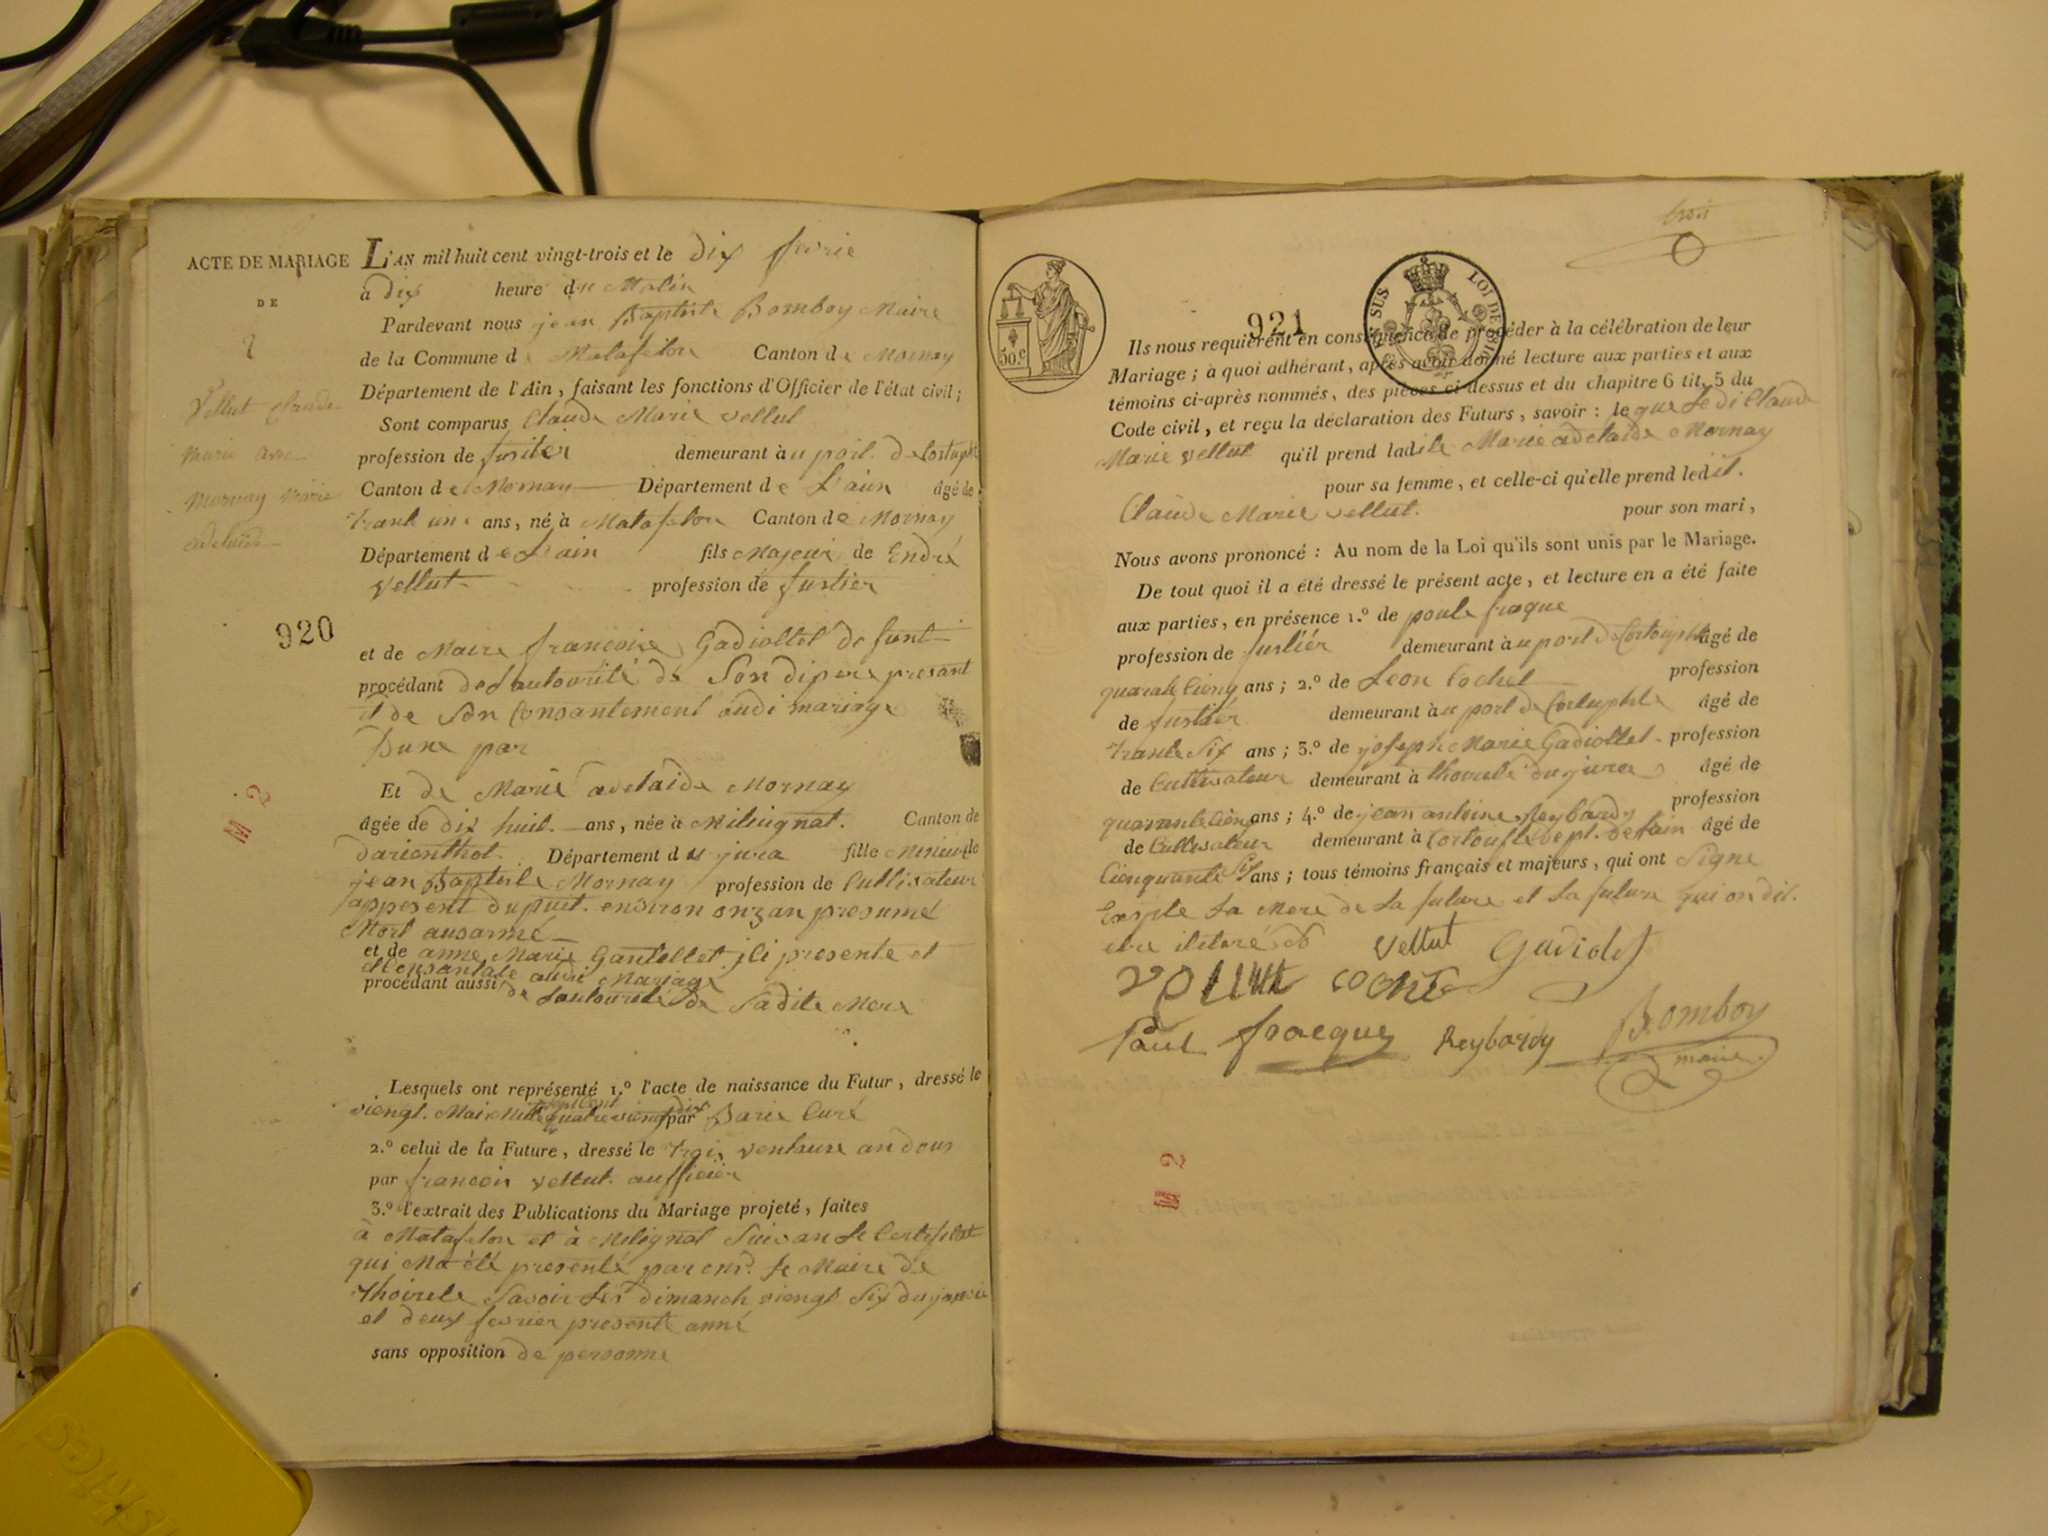 ACTE DE MARIAGE
DE
2
Vellut Claude
Marie avec
Mornay Marie
adelaide
920
L'AN mil huit cent vingt-trois et le dix fevrie
à dix heure du Matin
Pardevant nous jean Baptiste Bomboy Maire
de la Commune de Matafelon Canton de Mornay
Département de l'Ain, faisant les fonctions d'Officier de l'état civil;
Sont comparus Claude Marie Vellut
profession de fustier demeurant à u port de Cortouphle
Canton de Mornay Département de L'ain âgé de
trante un ans, né à Matafelon Canton de Mornay
Département de L'ain fils Majeur de Endré
Vellut profession de fustier
et de Maire francoise Gadiollet defunt
procédant de Lautourité de Son dipere presant
et de Son Consantement audi mariage
Dune par
Et de Marie adelaide Mornay
âgée de dix huit ans, née à Milignat. Canton de
Darienthot Département du jura fille Mineur de
jean Baptiste Mornay profession de Cultivateur
apposent dupuit environ onzan presumé
Mort auxarmé
et de anne Marie Gantellet ici presente et
Consantate audi Mariage
procédant aussi de Lautourité de Sadite Mere
Lesquels ont représenté 1.º l'acte de naissance du Futur, dressé le
viengt. Mai Mille sept Cent quatre viengt dix par Barie Curé
2.º celui de la Future, dressé le trois ventause an dous
par francois Vellut aufficier
3.º l'extrait des Publications du Mariage projeté, faites
à Matafelon et à Milignat Suivan Le Certificat
qui Ma été presenté par mr. Le Maire de
Thoirete Savoir Les dimanch viengt Six du janvie
et deux fevrier presente anné
sans opposition de personne
trois
50.c
EN SUS LOI DE
921
Ils nous requièrent en conséquence de procéder à la célébration de leur
Mariage; à quoi adhérant, après avoir donné lecture aux parties et aux
témoins ci-après nommés, des pièces ci-dessus et du chapitre 6 tit. 5 du
Code civil, et reçu la déclaration des Futurs, savoir: le que Ledi Claude
Marie Vellut qu'il prend ladite Marie adelaide Mornay
pour sa femme, et celle-ci qu'elle prend ledit.
Claude Marie Vellut. pour son mari,
Nous avons prononcé: Au nom de la Loi qu'ils sont unis par le Mariage.
De tout quoi il a été dressé le présent acte, et lecture en a été faite
aux parties, en présence 1.º de poule fraque
profession de fustiér demeurant à u port de Cortouphle âgé de
quarate Cienq ans; 2.º de Leon Cochet profession
de fustiér demeurant à u port de Cortuphle âgé de
trante Six ans; 3.º de joseph Marie Gadiollet profession
de Cultivateur demeurant à thoirete du jura âgé de
quarante Cienq ans; 4.º de jean antoine Reybardy profession
de Cultivateur demeurant à Cortoufle dept. de Lain âgé de
Cienquante Six ans; tous témoins français et majeurs, qui ont Signe
Exsple La Mere de La future et La future qui on dit.
etre iteteré
Vellut Gadiolet
Vellut Cochet
Paul fracque Reybardy Bomboy
maire